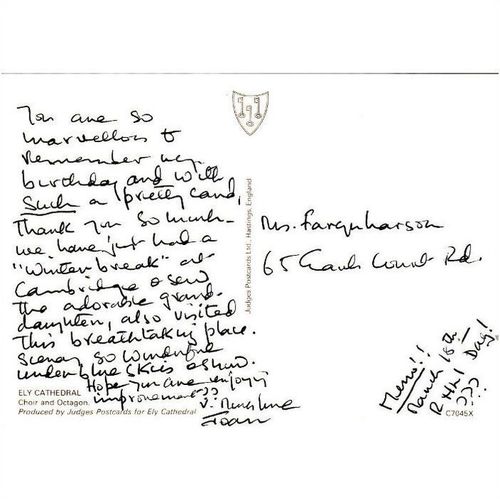 You are so
marvellous to
remember my
birthday and with
such a pretty card,
Thank you so much -
we have just had a
"Winter break" at
Cambridge & saw
the adorable grand-
daughter, also visited
This breathtaking place.
Scenery so wonderful
under blue skies & snow.
Hope you are enjoying
improvement??
V. much love
Joan
ELY CATHEDRAL
Choir and Octagon.
Produced by Judges Postcards for Ely Cathedral
Judges Postcards Ltd., Hastings, England.
Ms. Farquharson
65 Court Rd.
Memo!!
March 18th!
Day!
???
C7045X